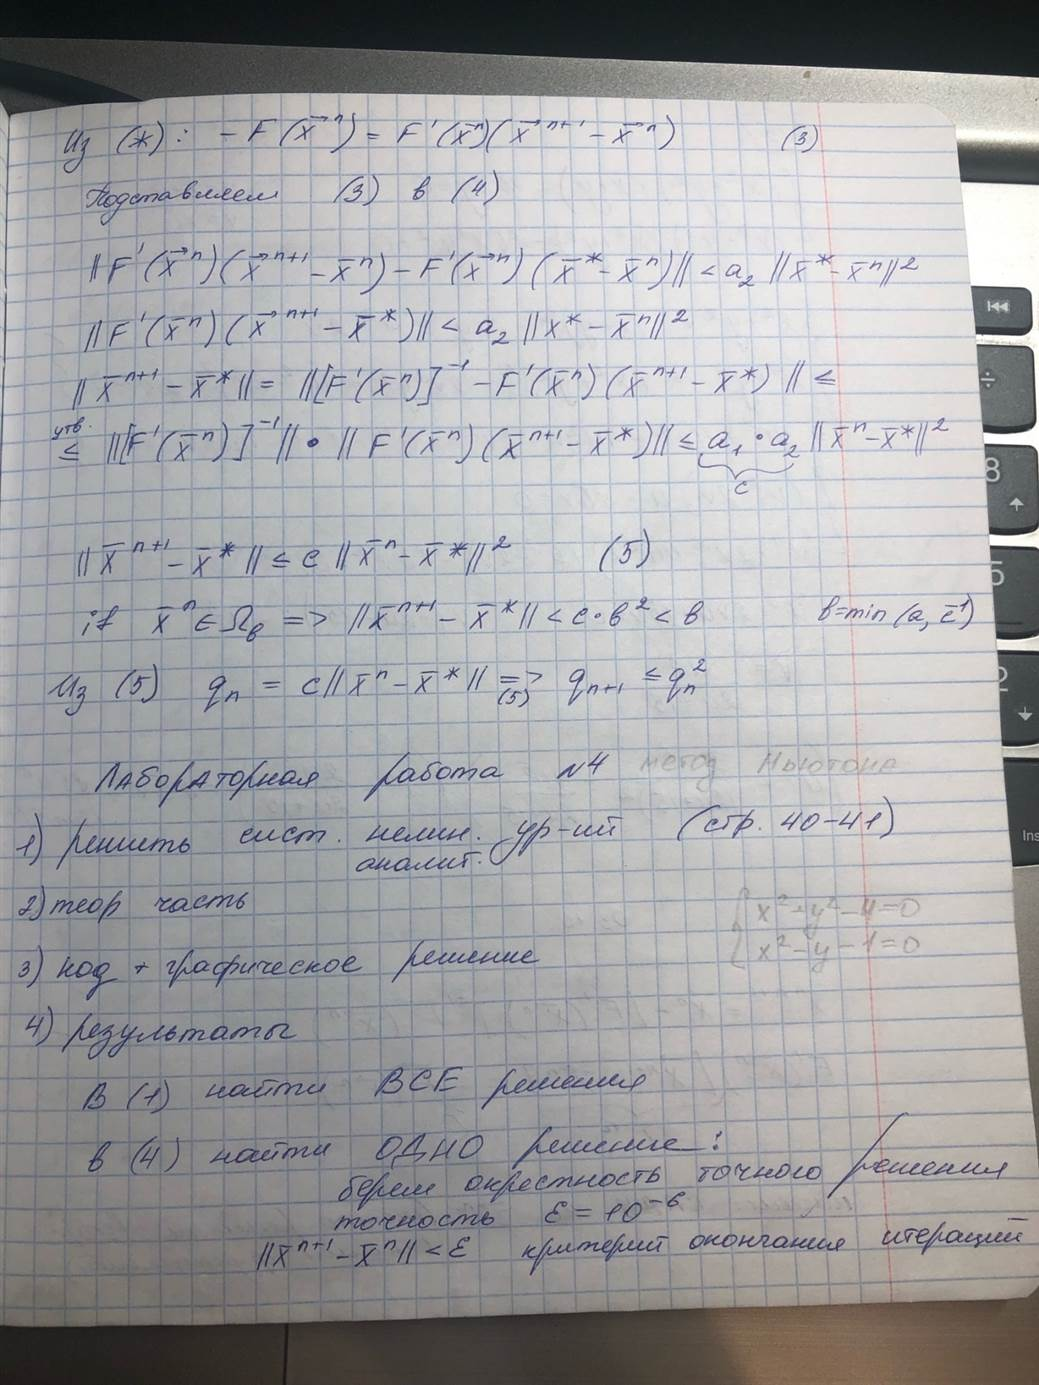 Из (*): - F(x⃗ⁿ) = F'(x̄ⁿ)(x⃗ⁿ⁺¹ - x̄ⁿ) (3)
Подставляем (3) в (4)
||F'(x⃗ⁿ)(x⃗ⁿ⁺¹ - x̄ⁿ) - F'(x⃗ⁿ)(x̄* - x̄ⁿ)|| < a₂ ||x̄* - x̄ⁿ||²
||F'(x̄ⁿ)(x⃗ⁿ⁺¹ - x̄*)|| < a₂ ||x* - x̄ⁿ||²
||x̄ⁿ⁺¹ - x̄*|| = ||[F'(x̄ⁿ)]⁻¹ - F'(x̄ⁿ)(x̄ⁿ⁺¹ - x̄*)|| ≤
утв. ≤ ||[F'(x̄ⁿ)]⁻¹|| • ||F'(x̄ⁿ)(x̄ⁿ⁺¹ - x̄*)|| ≤ a₁ • a₂ ||x̄ⁿ - x̄*||²
c
||x̄ⁿ⁺¹ - x̄*|| ≤ c ||x̄ⁿ - x̄*||² (5)
if x̄ⁿ ∈ Ω_b => ||x̄ⁿ⁺¹ - x̄*|| < c·b² < b b=min(a, c⁻¹)
Из (5) qₙ = c||x̄ⁿ - x̄*|| => (5) qₙ₊₁ ≤ qₙ²
Лабораторная работа №4 метод Ньютона
1) решить сист. нелин. ур-ий (стр. 40-41)
аналит.
2) теор часть
{ x² + y² - 4 = 0
x² - y - 1 = 0
3) код + графическое решение
4) результаты
В (1) найти ВСЕ решения
в (4) найти ОДНО решение:
берем окрестность точного решения
точность ε = 10⁻⁶
||x̄ⁿ⁺¹ - x̄ⁿ|| < ε критерий окончания итераций